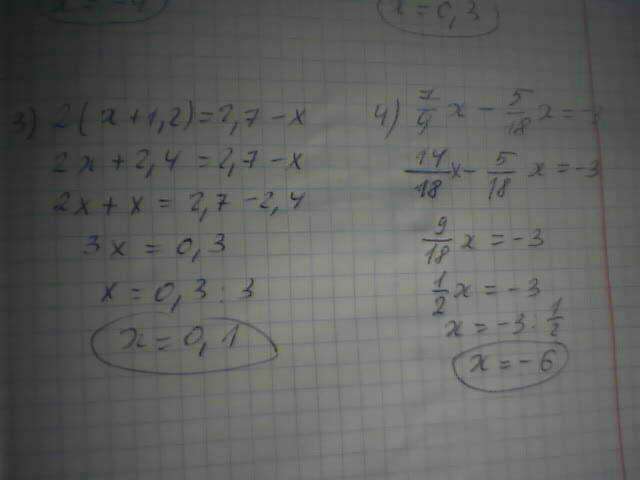 x = -4
x = 0,3
3) 2(x+1,2)=2,7-x
2x+2,4=2,7-x
2x+x=2,7-2,4
3x=0,3
x=0,3:3
x=0,1
4) 7/9 x - 5/18 x = -3
14/18 x - 5/18 x = -3
9/18 x = -3
1/2 x = -3
x = -3 : 1/2
x = -6